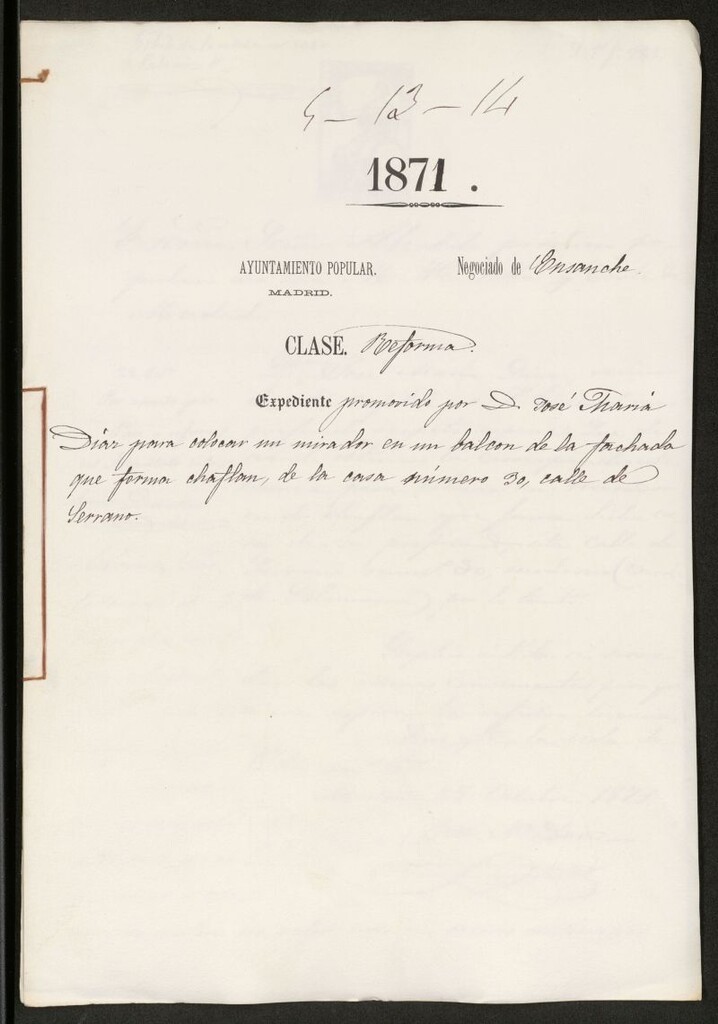 5-13-14
1871.
AYUNTAMIENTO POPULAR. Negociado de Ensanche.
MADRID.
CLASE. Reforma.
Expediente promovido por D. José Maria
Díaz para colocar un mirador en un balcon de la fachada
que forma chaflan, de la casa número 30, calle de
Serrano.